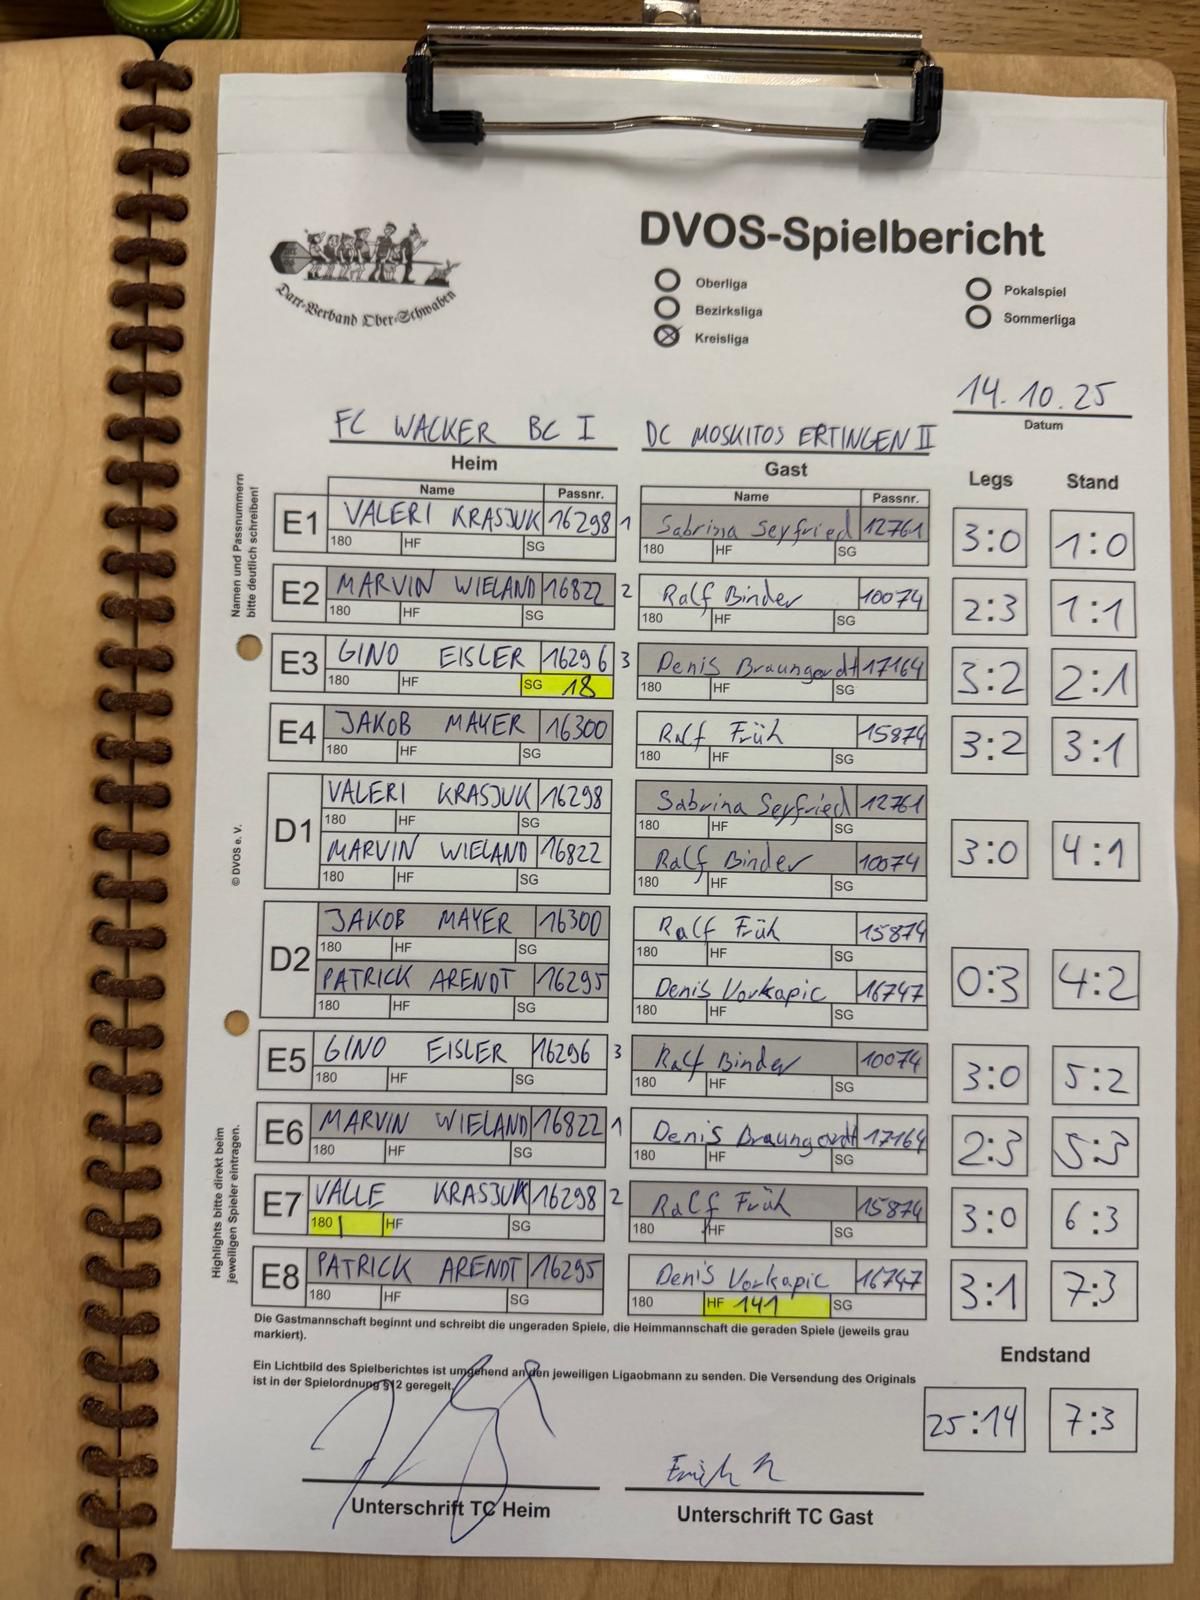 DVOS-Spielbericht
Dart-Verband Ober-Schwaben
Oberliga
Bezirksliga
Kreisliga
Pokalspiel
Sommerliga
14.10.25
Datum
FC WACKER BC I
DC MOSKITOS ERTINGEN II
Heim
Gast
Legs Stand
Namen und Passnummern
bitte deutlich schreiben!
Name Passnr. Name Passnr.
E1 VALERI KRASJUK 16298 1 Sabrina Seyfried 12761 3:0 1:0
180 HF SG 180 HF SG
E2 MARVIN WIELAND 16822 2 Ralf Binder 10074 2:3 1:1
180 HF SG 180 HF SG
E3 GINO EISLER 16296 3 Denis Braungardt 17164 3:2 2:1
180 HF SG 18 180 HF SG
E4 JAKOB MAYER 16300 Ralf Früh 15874 3:2 3:1
180 HF SG 180 HF SG
© DVOS e. V.
D1 VALERI KRASJUK 16298 Sabrina Seyfried 12761 3:0 4:1
180 HF SG 180 HF SG
MARVIN WIELAND 16822 Ralf Binder 10074
180 HF SG 180 HF SG
D2 JAKOB MAYER 16300 Ralf Früh 15874 0:3 4:2
180 HF SG 180 HF SG
PATRICK ARENDT 16295 Denis Vorkapic 16747
180 HF SG 180 HF SG
Highlights bitte direkt beim
jeweiligen Spieler eintragen.
E5 GINO EISLER 16296 3 Ralf Binder 10074 3:0 5:2
180 HF SG 180 HF SG
E6 MARVIN WIELAND 16822 1 Denis Braungardt 17164 2:3 5:3
180 HF SG 180 HF SG
E7 VALLE KRASJUK 16298 2 Ralf Früh 15874 3:0 6:3
180 | HF SG 180 HF SG
E8 PATRICK ARENDT 16295 Denis Vorkapic 16747 3:1 7:3
180 HF SG 180 HF 141 SG
Die Gastmannschaft beginnt und schreibt die ungeraden Spiele, die Heimmannschaft die geraden Spiele (jeweils grau
markiert).
Ein Lichtbild des Spielberichtes ist umgehend an den jeweiligen Ligaobmann zu senden. Die Versendung des Originals
ist in der Spielordnung §12 geregelt.
Endstand
25:14 7:3
Unterschrift TC Heim
Unterschrift TC Gast